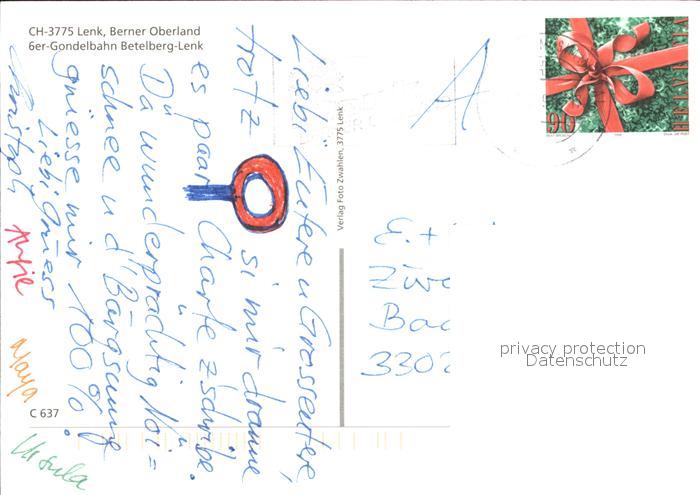 CH-3775 Lenk, Berner Oberland
6er-Gondelbahn Betelberg-Lenk
Liebi Eutere u Grosseutere,
trotz si mir dranne
es paar Charte z'schribe.
Dä wunderprächtig Nöi=
schnee u d'Bärgsunne
gniesse mir 100%.
Liebi Grüess
Antje
Maja
Ursula
Verlag Foto Zwahlen, 3775 Lenk
A
90
E. +
3302
privacy protection
Datenschutz
C 637